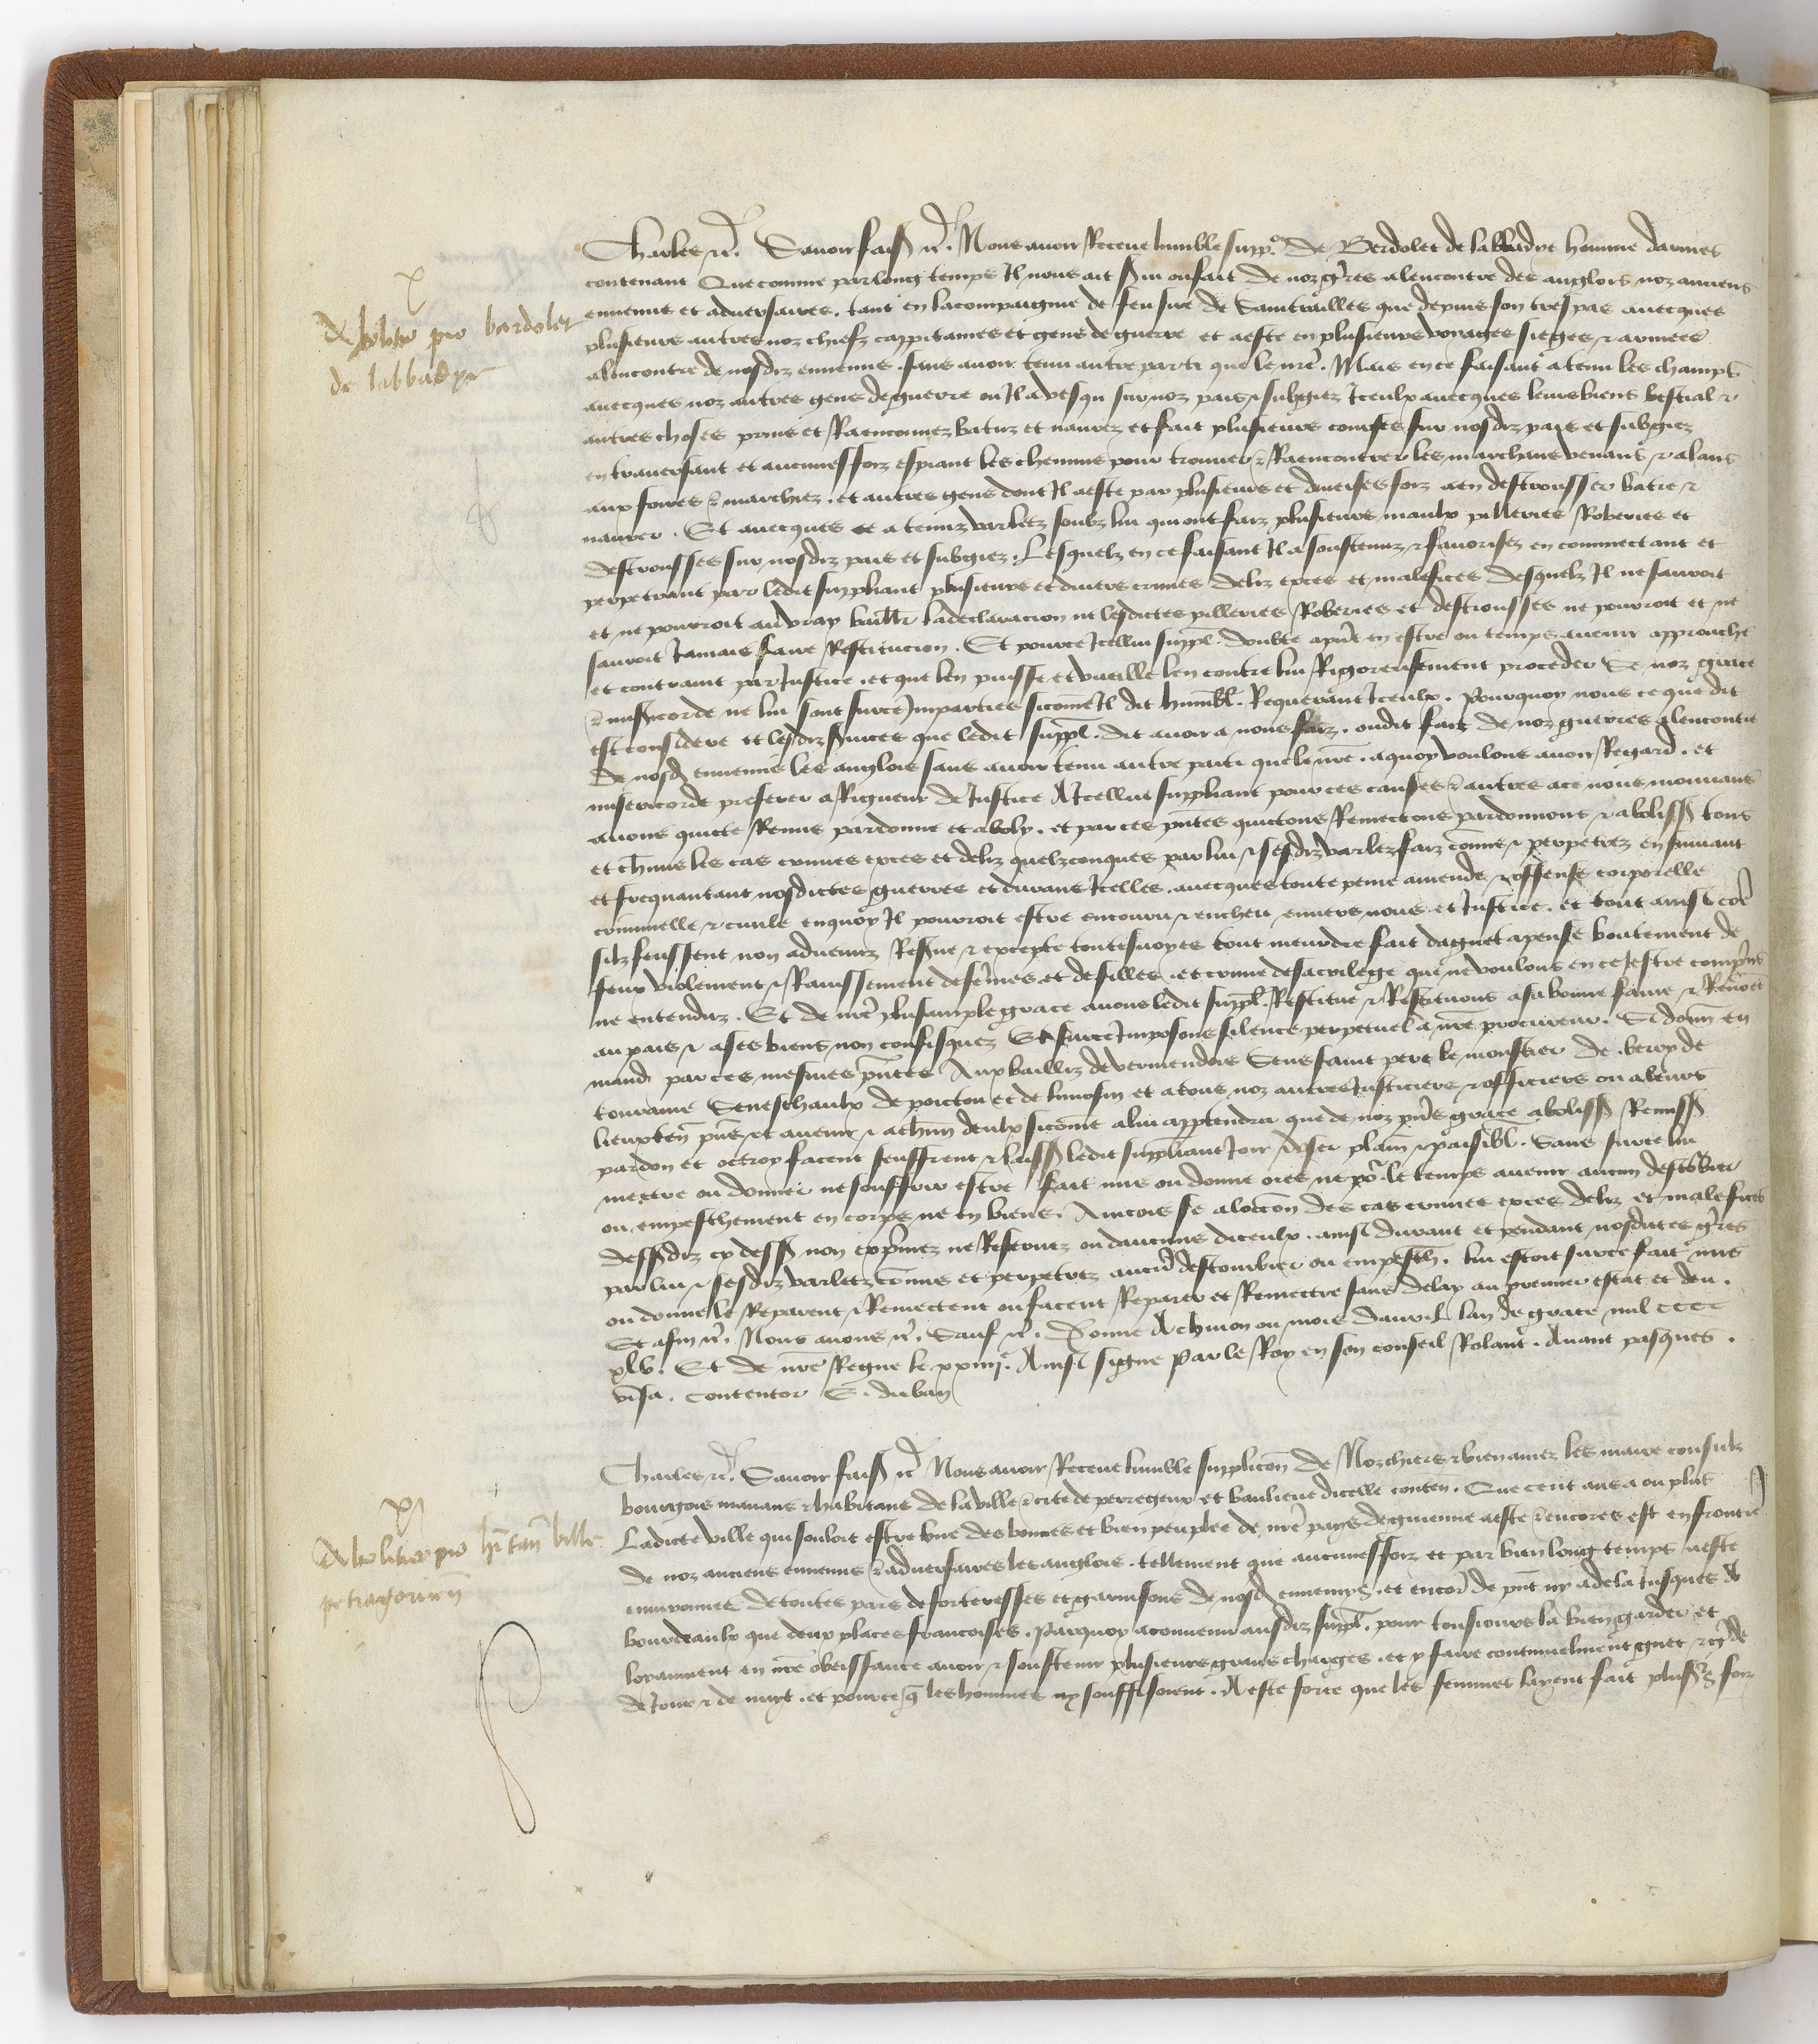 x
Abolitio pro bardolet
de labbadye
Charles etc. Savoir fais etc. Nous avoir Receue humble supp.on de Berdolet de labbadye homme darmes
contenant Que comme par long temps Il nous ait s'vi ou fait de noz g'res alencontre des anglois noz anciens
ennemis et adversaires. tant en la compaignie de feu sire de Saintrailles que depuis son trespas avecques
plusieurs autres noz chiefz cappitaines et gens de guerre et a este en plusieurs voyages sieges et armees
alencontre de nosdiz ennemis. sans avoir tenu autre parti que le nre. Mais en ce faisant a tenu les champs
avecques noz autres gens de guerre ou Il a vesqu sur noz pais et subgiez Iceulx avecques leurs biens bestial et
autres choses prins et Raenconnez batuz et navrez et fait plusieurs courses sur nosdiz pais et subgiez
en traversant et aucunesfoiz espiant les chemins pour trouver et Raencontrer les marchans venans et alans
aux foires et marchiez. et autres gens dont Il a este par plusieurs et diverses foiz a en destrousser batre et
navrer. Et avecques ce a tenuz varletz soubz lui qui ont faiz plusieurs maulx pilleries Roberies et
destrousses sur nosdiz pais et subgiez. Lesquelz en ce faisant Il a soustenuz et favorisez en commectant et
perpetrant par ledit suppliant plusieurs et divers crimes deliz exces et malefices desquelz Il ne sauroit
et ne pourroit au vray bailler la declaracion ne lesdictes pilleries Roberies et destrousses ne pourroit et ne
sauroit Jamais faire Restitucion. Et pource Icellui suppl. doubte ap'nt en estre ou temps avenir approuche
et contraint par Justice. et que len puisse et vueille len contre lui Rigoreusement proceder Se noz grace
et mis'icorde ne lui sont surce Imparties sicome Il dit humbl. Requerant Iceulx. Pourquoy nous ce que dit
est considere et lesdiz s'vices que ledit suppl. dit avoir a nous faiz. oudit fait de noz guerres alencontre
de nosd ennemis les anglois sans avoir tenu autre parti que le nre. aquoy voulons avoir Regard. et
misericorde preferer a Rigueur de Justice A Icellui suppliant pour ces causes et autres ace nous mouvans
avons quicte Remis pardonne et aboly. et par ces p'ntes quictons Remectons pardonnons et aboliss' tous
et ch'uns les cas crimes exces et deliz quelzconques par lui et sesdiz varlez faiz comis et perpetrez en suivant
et frequantant nosdictes guerres et durans Icelles. avecques toute peine amende et offense corporelle
criminelle et civile enquoy Il pourroit estre encouru et encheu envers nous et Justice. et tout ainsi co'e
silz feussent non advenuz Res've et excepte toutesvoyes tout meurdre fait daguet apense boutement de
feux violement et Ravissement de femes et de filles. et crime de sacrilege que ne voulons en ce estre compris
ne entenduz. Et de nre plus ample grace avons ledit suppl. Restitue et Restituons a sa bonne fame et Renomee
au pais et a ses biens non confisquez Et surce Imposons silence perpetuel a nre procureur. Si donn en
mand par ces mesmes p'ntes Aux bailliz de vermendois Sens saint pere le monstier de berry de
touraine Seneschaulx de poictou et de limosin et a tous noz autres Justiciers et officiers ou a leurs
lieuxten p'ns et avenir et a ch'un deulx sicome a lui appartendra que de noz p'ns grace aboliss' Remiss'
pardon et octroy facent seuffrent et laiss' ledit suppliant Joir et user plain et paisibl. Sans surce lui
mectre ou donner ne souffrir estre fait mis ou donne ores ne po'r le temps avenir aucun destorbier
ou empeschement en corps ne en biens. Aincois se aloccon des cas crimes exces deliz et malefices
dessusdiz cy dess' non exprimez ne Reservez ou daucuns diceulx. ainsi durant et pendant nosdictes g'res
par lui et sesdiz varletz comis et perpetrez aucun destourbier ou empesch. lui estoit surce fait mis
ou donne le Reparent et Remectent ou facent Reparer et Remectre sans delay au premier estat et deu.
Et afin etc. Nous avons etc. Sauf etc. Donne A chinon ou mois davril lan de grace mil cccc
xlv. Et de nre Regne le xxiiije. Ainsi signe Par le Roy en son conseil Rolant. Avant pasques.
visa. contentor E. duban
xj
Abolitio pro h'itan' ville
petragoricen
Charles etc. Savoir fais etc Nous avoir Receue humble supplicon de Noz chiers et bien amez les maire consulz
bourgois manans et habitans de la ville et cite de perregeux et banlieue dicelle conten. Que cent ans a ou plus
Ladicte ville qui souloit estre une des bonnes et bien peuplee de nre pays de guienne a este et encores est en frontiere
de noz anciens ennemis et adversaires les anglois. tellement que aucunesfoiz et par bien long temps a este
environnee de toutes pars de forteresses et garnisons de nosd ennemys. et encor de p'nt ny a dela Jusques A
bourdeaulx que deux places francoises. Parquoy a convenu ausdiz suppl. pour tousjours la bien garder et
loyaument en nre obeissance avoir et soustenir plusieurs grans charges. et y faire continuelment guet et g'de
de Jour et de nuyt. et pource que les hommes ny souffisoient. A este force que les femmes layent fait plus's foiz